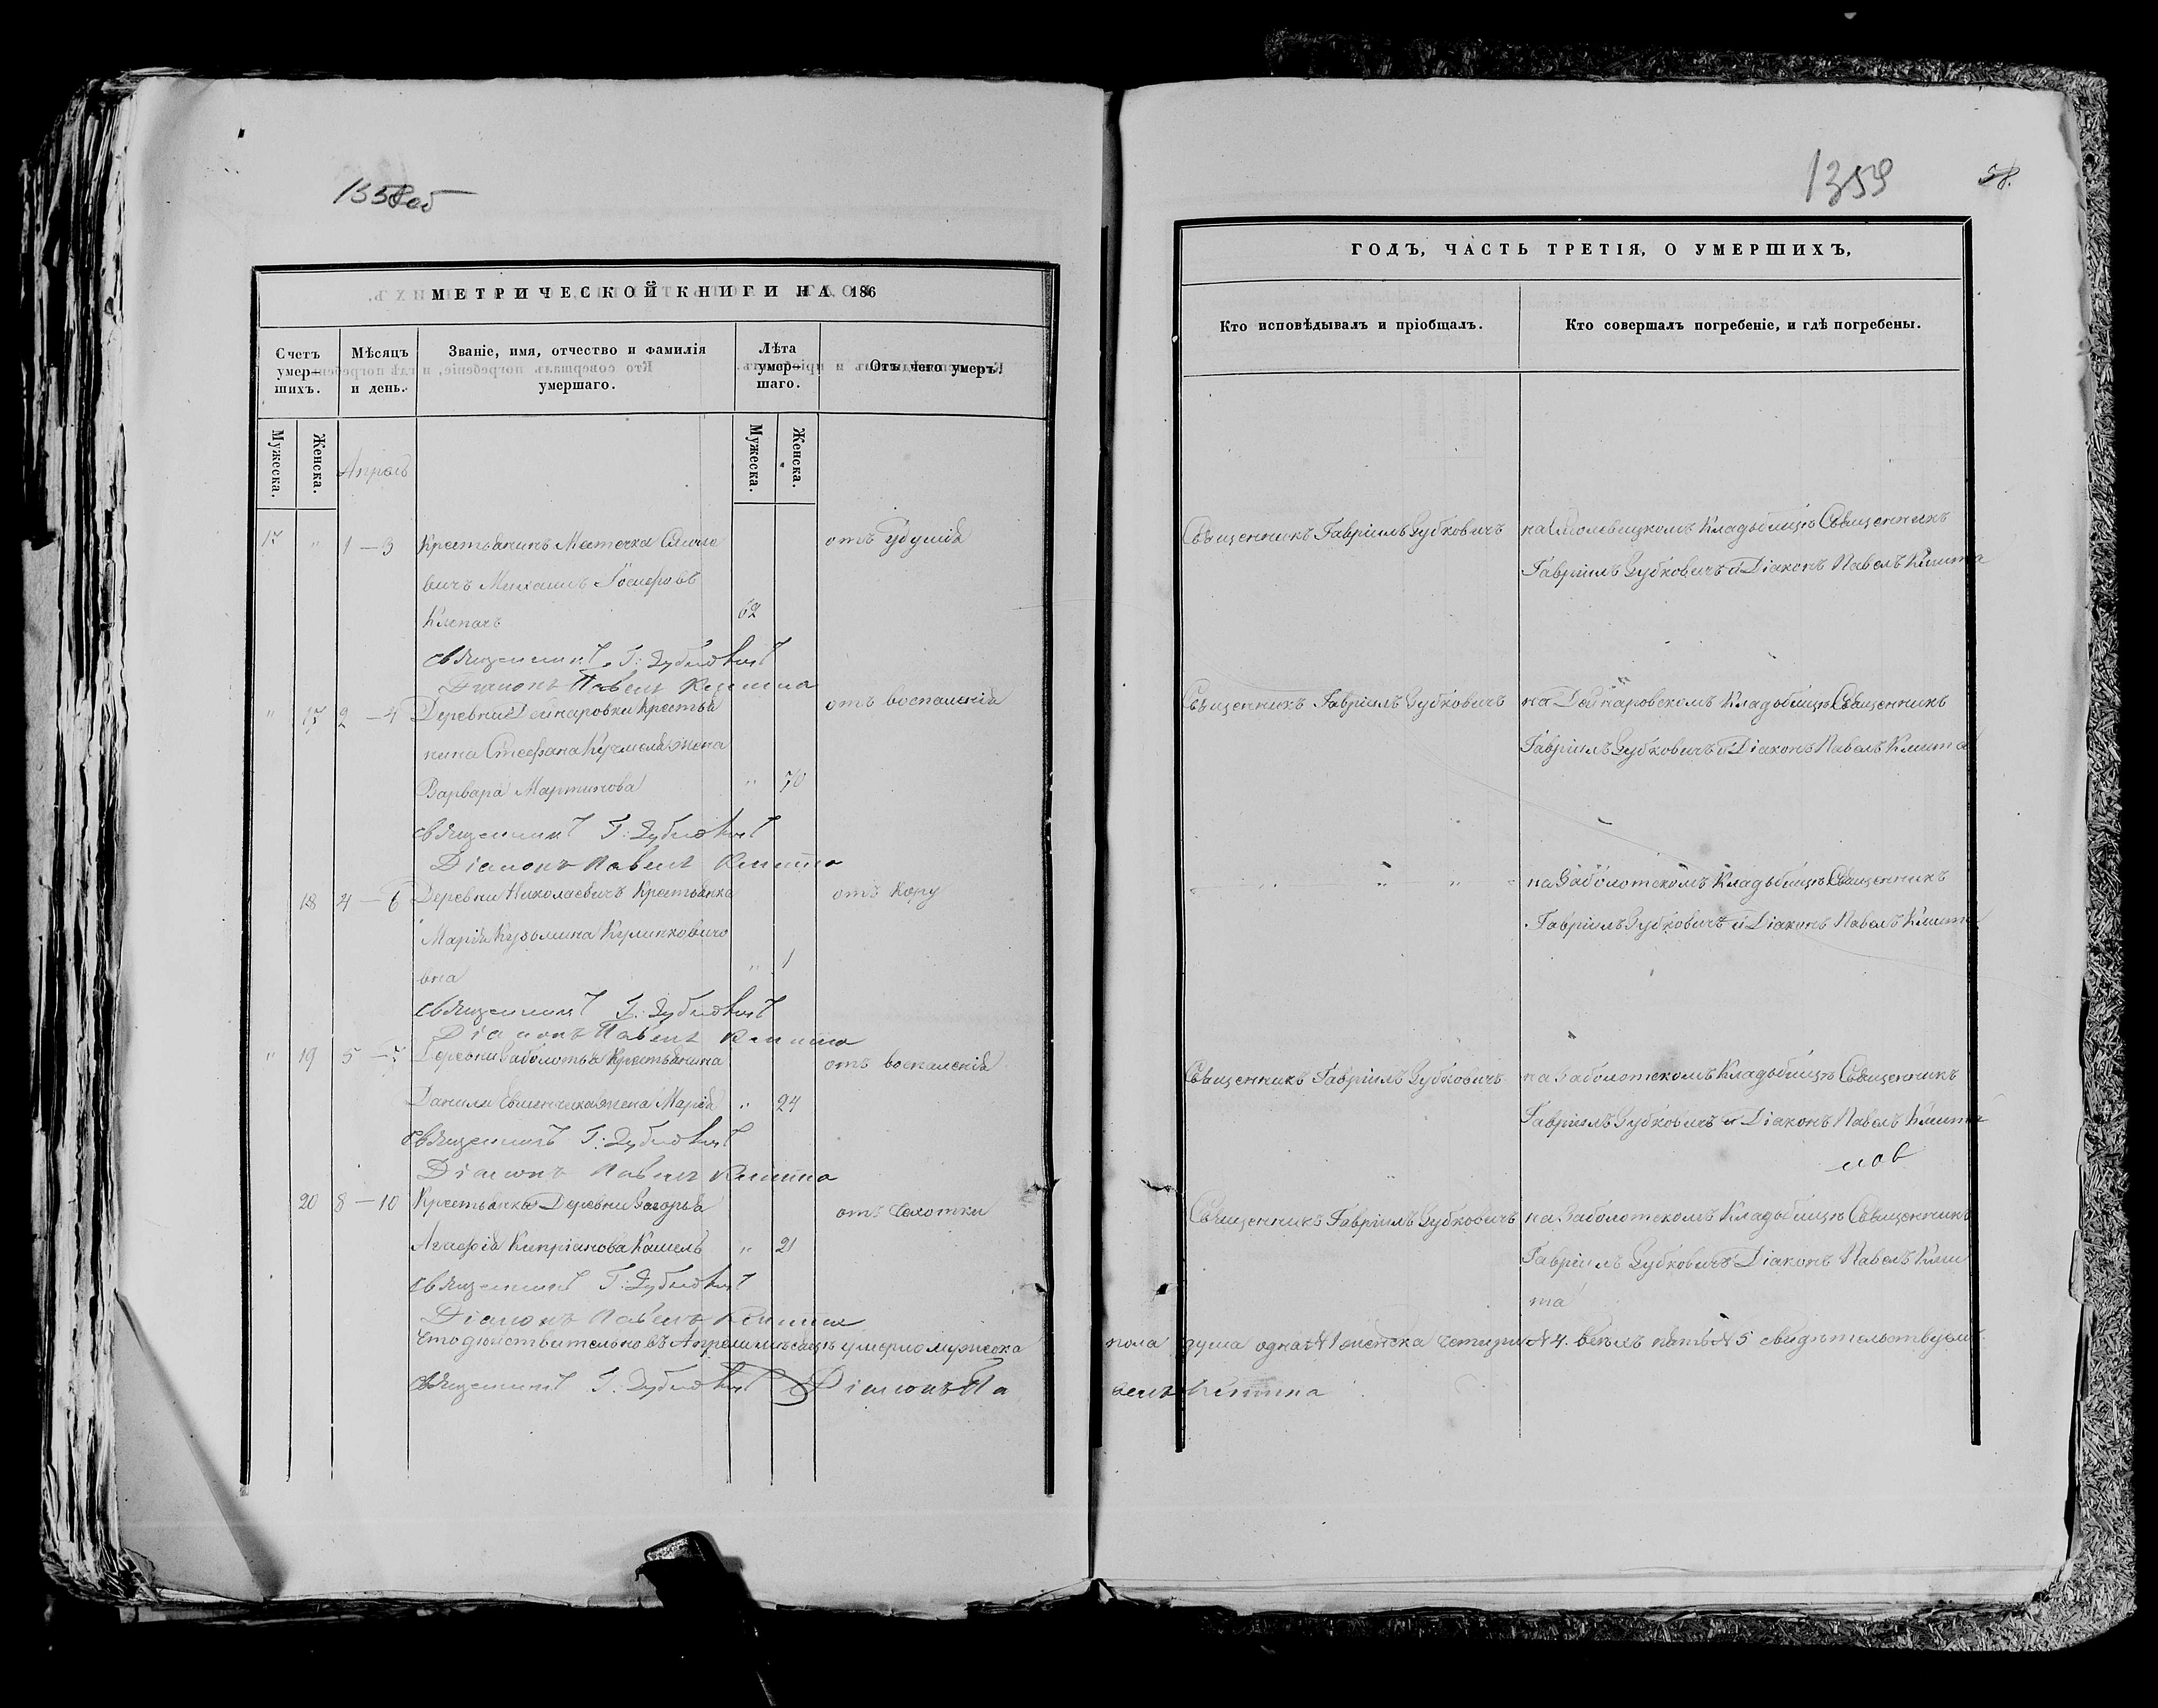 1358 об
МЕТРИЧЕСКОЙ КНИГИ НА 186
Счетъ умер-
шихъ.
Мѣсяцъ
и день.
Званіе, имя, отчество и фамилія
умершаго.
Лѣта
умер-
шаго.
Отъ чего умеръ.
Мужеска.
Женска.
Апрѣль
Мужеска.
Женска.
17 " 1 – 3 Крестьянинъ Местечка Смоле
отъ удушія
вичъ Михаилъ Іосифовъ
Клепачъ 62
Священникъ Г: Зубковичъ
Діаконъ Павелъ Клитта
" 17 2 – 4 Деревни Дейнаровки Крестья
отъ воспаленія
нина Стефана Кучмеля жена
Варвара Мартинова " 70
Священникъ Г: Зубковичъ
Діаконъ Павелъ Клитта
18 4 – 6 Деревни Николаевичъ Крестьянка
отъ Кору
Марія Кузьмина Кулинковичо
вна " 1
Священникъ Г: Зубковичъ
Діаконъ Павелъ Клитта
" 19 5 – 7 Деревни Заболотья Крестьянина
отъ воспаленія
Данилы жена Марія " 24
Священникъ Г: Зубковичъ
Діаконъ Павелъ Клитта
20 8 – 10 Крестьянка Деревни Загорья
отъ Сахотки
Агафія Кипріанова Кашель " 21
Священникъ Г: Зубковичъ
Діаконъ Павелъ Клитта
Что действительно въ Апреле месяцѣ умерло мужеска
Священникъ Г: Зубковичъ Діаконъ Па
1359
58.
ГОДЪ, ЧАСТЬ ТРЕТІЯ, О УМЕРШИХЪ,
Кто исповѣдывалъ и пріобщалъ.
Кто совершалъ погребеніе, и гдѣ погребены.
Священникъ Гавріилъ Зубковичъ
на Смолевицкомъ Кладбищѣ Священникъ
Гавріилъ Зубковичъ и Діаконъ Павелъ Клита
Священникъ Гавріилъ Зубковичъ
на Дейнаровскомъ Кладбищѣ Священникъ
Гавріилъ Зубковичъ и Діаконъ Павелъ Клита
" " " "
на Заболотскомъ Кладбищѣ Священникъ
Гавріилъ Зубковичъ и Діаконъ Павелъ Клита
Священникъ Гавріилъ Зубковичъ
на Заболотскомъ Кладбищѣ Священникъ
Гавріилъ Зубковичъ и Діаконъ Павелъ Клита
Священникъ Гавріилъ Зубковичъ
на Заболотскомъ Кладбищѣ Священникъ
Гавріилъ Зубковичъ Діаконъ Павелъ Кли
та
пола душа одна №1 женска четыри №4. всехъ пять №5 свидѣтельствуемъ
велъ Клитта